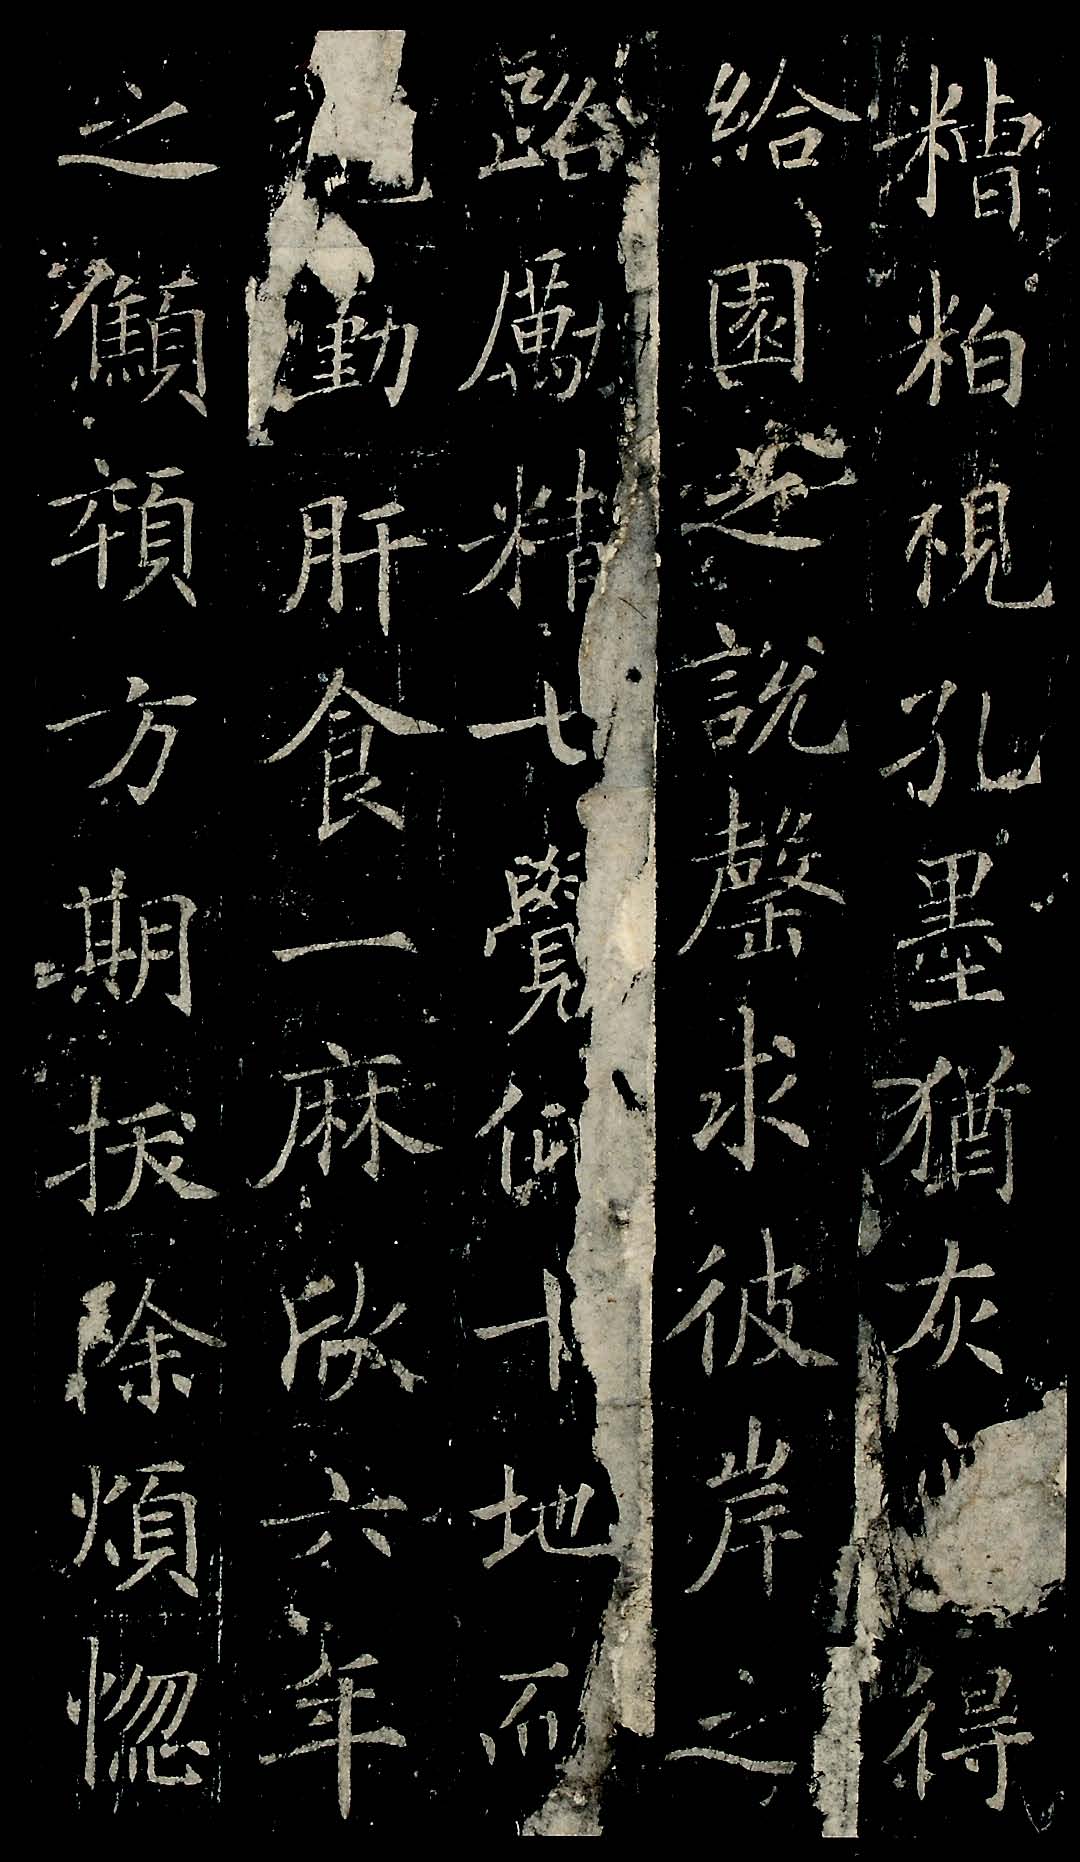 糟粕視孔墨猶灰得
給園之說罄求彼岸之
路厲精七覺仰十地而
勤肝食一麻欣六年
之顦顇方期拔除煩惱